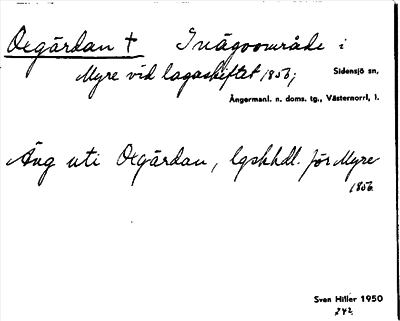 Oegärdan † Inägoområde i
Myre vid lagaskiftet 1856;
Sidensjö sn,
Ångermanl. n. doms. tg., Västernorrl. l.
Äng uti Oegärdan, lgskhdl. för Myre
1856.
Sven Hiller 1950
242.